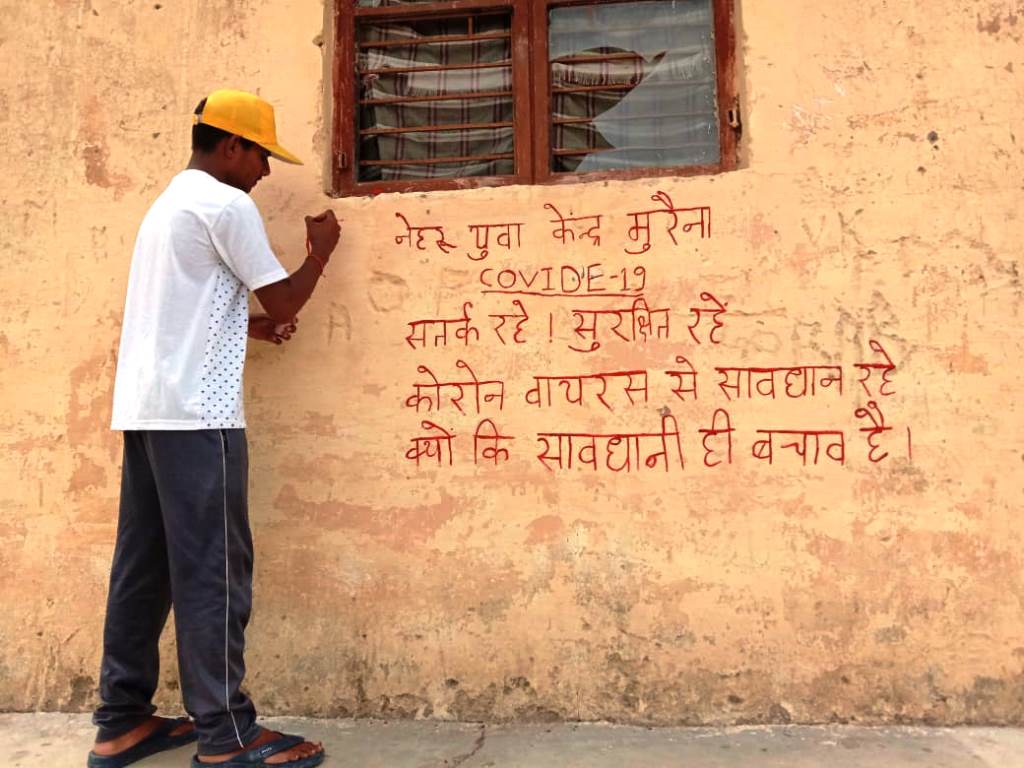 नेहरू युवा केन्द्र मुरैना
COVIDE-19
सतर्क रहे ! सुरक्षित रहें
कोरोन वायरस से सावधान रहे
क्यों कि सावधानी ही बचाव है।